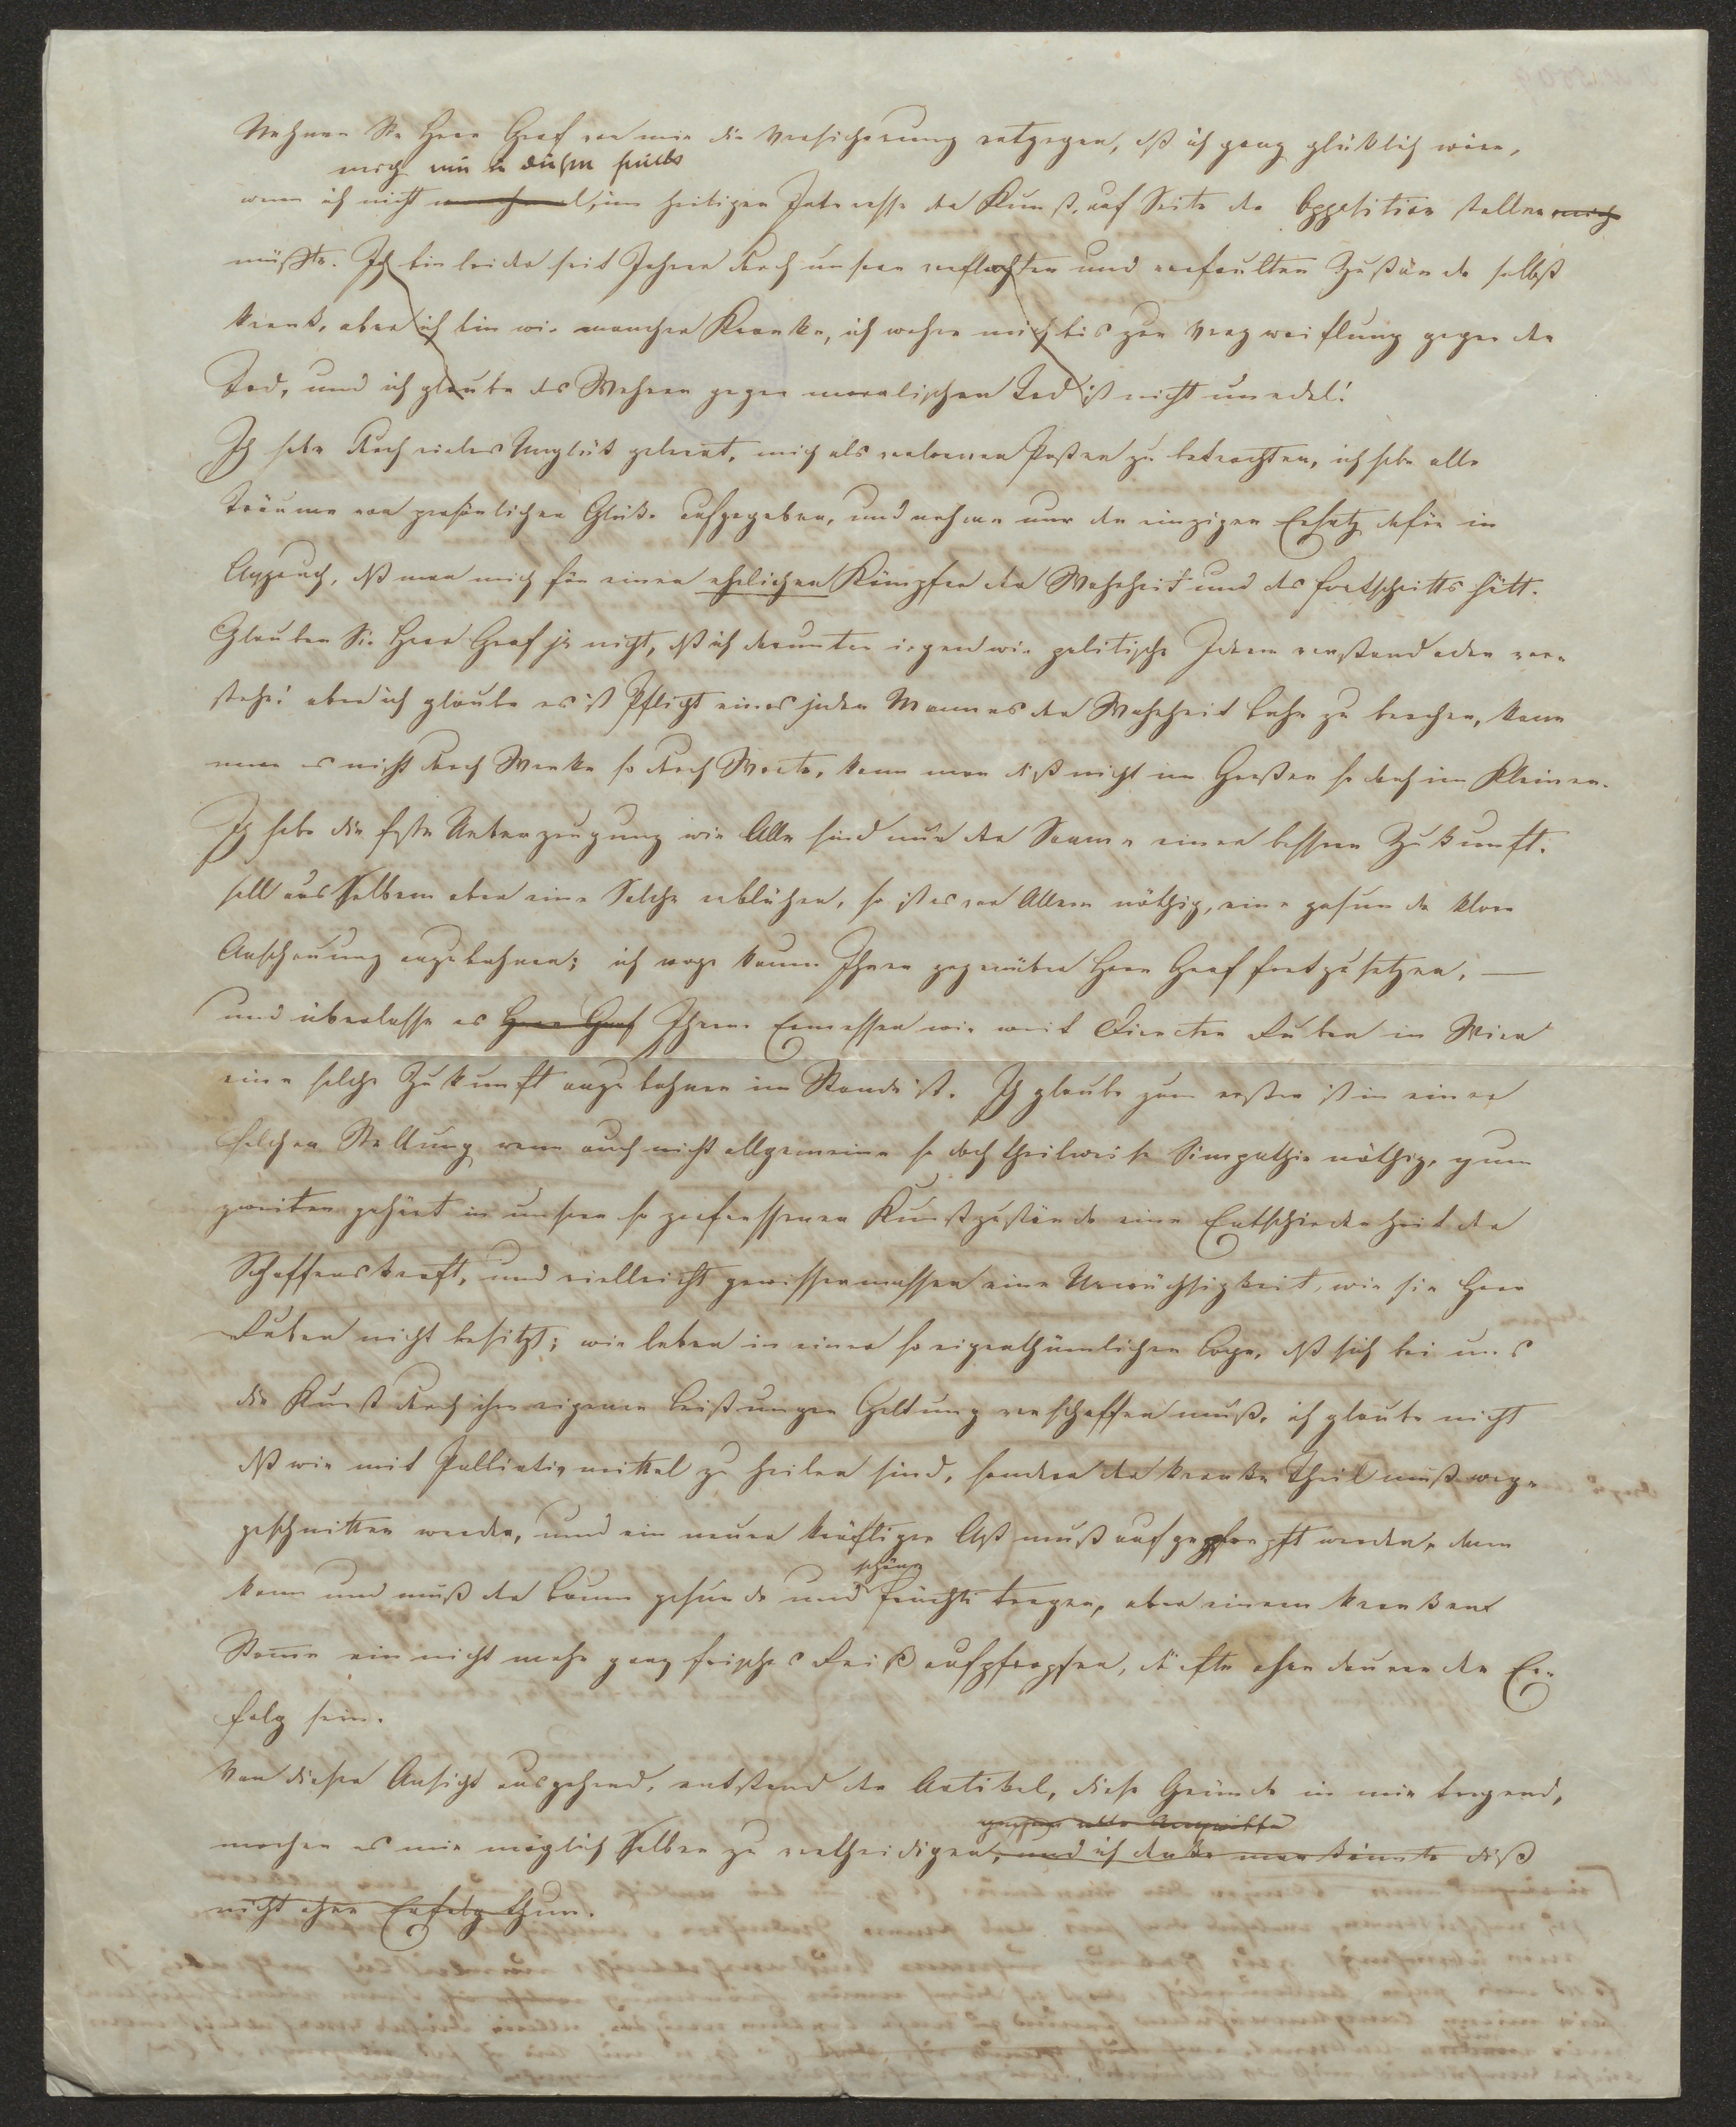 Nehmen Sie Herr Graf von mir die Versicherung entgegen, dß ich ganz glüklich wäre,
mich nun in diesem
wenn ich nicht im heiligen Interesse der Kunst, auf Seite der Oppotition stellen mich
müßte. Ich bin leider seit Jahren durch unsere verflachten und verfaulten Zustände selbst
krank, aber ich bin wie mancher Kranke, ich wehre mich bis zur Verzweiflung gegen den
Tod, und ich glaube das Wehren gegen moralischen Tod ist nicht unedel!
Ich habe durch vieles Unglük gelernt, mich als verlornen Posten zu betrachten, ich habe alle
Träume von persönlichen Glüke aufgegeben, und nehme nur den einzigen Ersatz dafür in
Anspruch, dß man mich für einen ehrlichen Kämpfer der Wahrheit und des Fortschritts hält.
Glauben Sie Herr Graf ja nicht, dß ich darunter irgendwie politische Ideen verstand oder ver-
stehe! aber ich glaube es ist Pflicht eines jeden Mannes der Wahrheit Bahn zu brechen, kann
man es nicht durch Werke so durch Worte, kann man diß nicht im Großen so doch im Kleinen.
Ich habe die feste Ueberzeugung wir Alle sind nur der Saame einer bessren Zukunft.
soll aus selbem aber eine Solche erblühen, so ist es vor Allem nöthig, eine gesunde klare
Anschauung anzubahnen; ich wage kaum Ihnen gegenüber Herr Graf fortzusetzen, —
und überlasse es Herr Graf Ihrem Ermessen wie weit Director Ruben in Wien
eine solche Zukunft anzubahnen im Stande ist. Ich glaube zum ersten ist in einer
solchen Stellung wenn auch nicht allgemeine so doch theilweise Simpathie nöthig, zum
zweiten gehört in unsere so zerfressenen Kunstzustände eine Entschiedenheit der
Schaffenskraft, und vielleicht gewissermassen eine Urwüchsigkeit, wie sie Herr
Ruben nicht besitzt; wir leben in einer so eigenthümlichen Lage, dß sich bei uns
die Kunst durch ihre eigenen Leistungen Geltung verschaffen muß, ich glaube nicht
dß wir mit Palliativmittel zu heilen sind, sondern der kranke Theil muß weg-
geschnitten werden, und ein neuer kräftiger Ast muß aufgepfropft werden, dann
schöne
kann und muß der Baum gesunde und Früchte tragen, aber einem kranken
Stamme ein nicht mehr ganz frisches Reiß aufpfropfen, dürfte ohne dauernden Er-
folg sein.
Von dieser Ansicht ausgehend, entstand der Artikel, diese Gründe in mir tragend,
gegen alle Angriffe
machen es mir möglich selben zu vertheidigen, und ich denke man könnte diß
nicht ohne Erfolg thun.